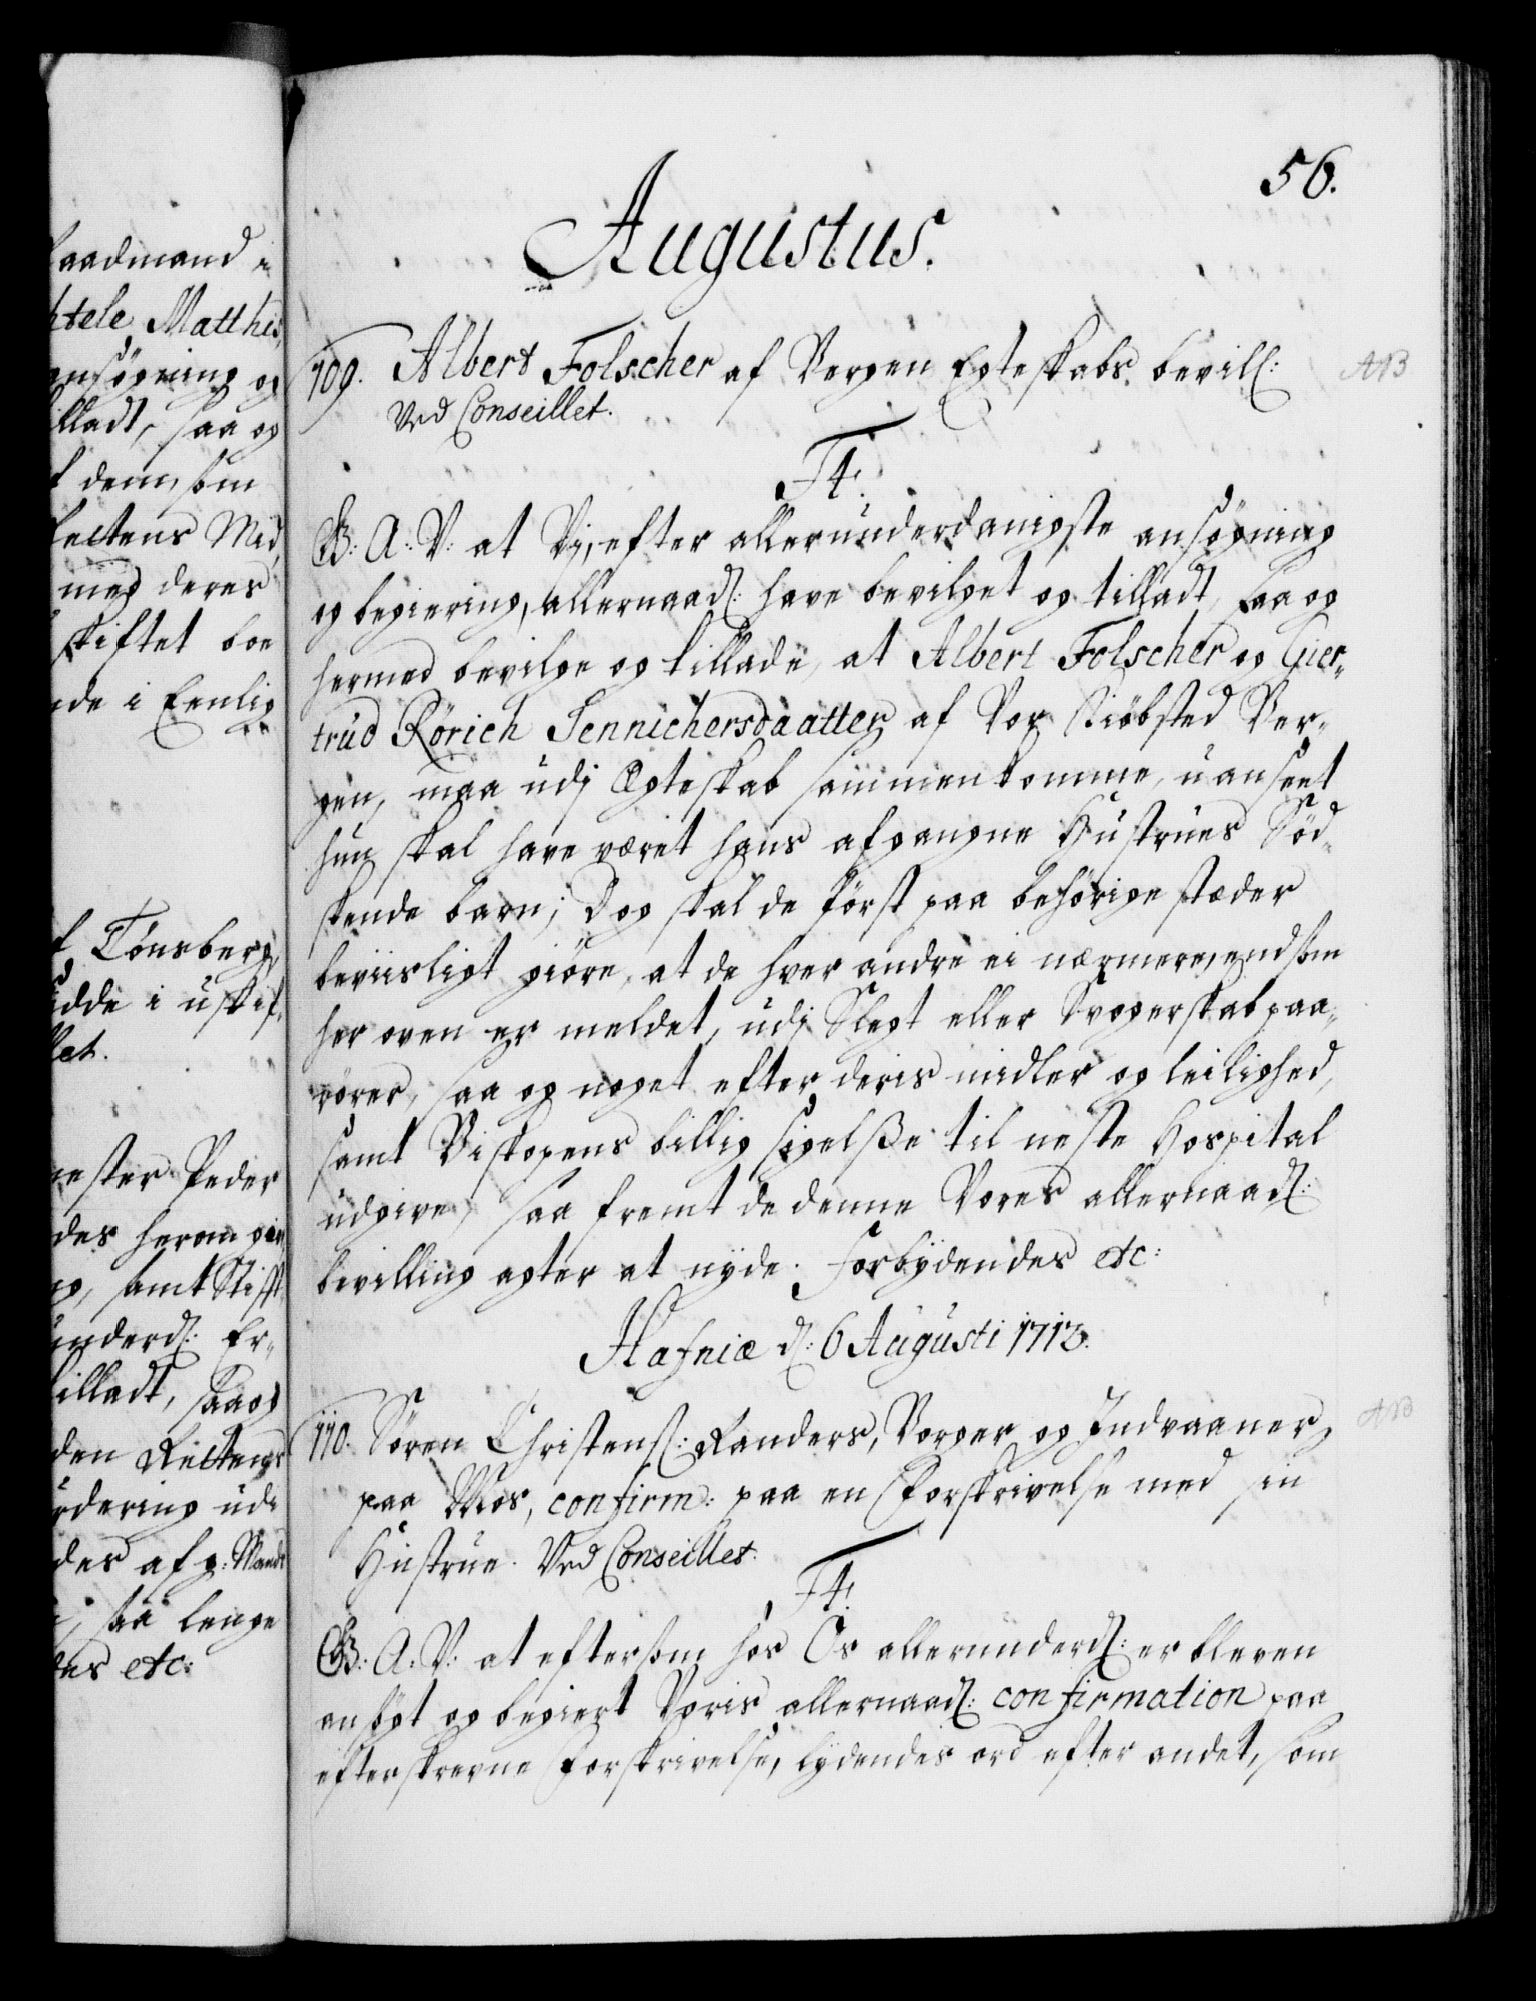 aadmand i
htele, Matthis,
ansøgning og
illadt, saa og
denn, som
Rettens Mid,
med deres
skiftet boe
nde i Eenlig
f Tønsberg,
idde i uskif,
let.
mester Peder
des herom giv,
ng, samt Stifft,
underd: Er,
tilladt, saa og
den Rettens
vurdering udi
des afg: Mands
saa lenge
des etc:
56.
Augustus.
109. Albert Folscher af Bergen Egteskabs bevill:
Ved Conseillet.
F4.
G: A: V: at Vj, efter allerunderdanigste ansøgning
og begiering, allernaad: have bevilget og tilladt, saa og
hermed bevilge og tillade, at Albert Folscher og Gier,
trud Rörich Jennichersdaatter af Vor Kiøbsted Ber,
gen, maa udj Ægteskab sammenkomme, uanseet
hun skal have været hans afgangne Hustrues Sød,
skende barn; Dog skal de først paa behørige stæder
beviisligt giøre, at de hver andre ei nærmere, end som
her oven er meldet, udj Slegt eller Svogerskab paa,
rører, saa og noget efter deris midler og leilighed,
samt Biskopens billig sigelße til neste Hospital
udgive, saa fremt de denne Vores allernaad:
bevilling agter at nyde. Forbydendes etc:
Hafniæ d: 6 Augusti 1713.
110. Søren Christens: Randers, Borger og Indvaaner
paa Mos, confirm: paa en Forskrivelse med sin
Hustrue. Ved Conseillet.
F4.
G: A: V: at eftersom hos Os allerunderd: er bleven
ansøgt og begiert Voris allernaad: confirmation paa
efterskrevne Forskrivelse, lydendes ord efter andet, som